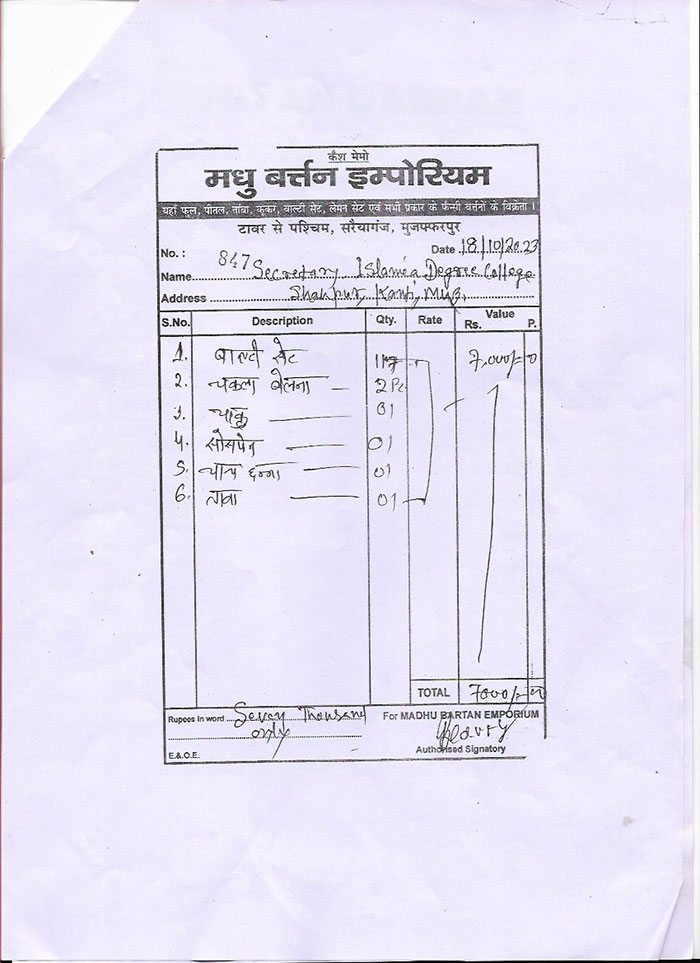 कैश मेमो
मधु बर्त्तन इम्पोरियम
यहाँ फुल, पीतल, तांबा, कुकर, बाल्टी सेट, लेमन सेट एवं सभी प्रकार के फैन्सी बर्त्तनों के विक्रेता ।
टावर से पश्चिम, सरैयागंज, मुजफ्फरपुर
No. : 847 Date 18/10/2023
Name Secretary Islamia Degree College
Address Shahpur, Kanti, Muz.
S.No. Description Qty. Rate Value Rs. P.
1. बाल्टी सेट 7,000/-
2. चकला बेलना — 2 Pc
3. चाकू — 01
4. सोसपेन — 01
5. चाय छन्ना — 01
6. तावा — 01
TOTAL 7000/-
Rupees in word Seven Thousand
only
For MADHU BARTAN EMPORIUM
Authorised Signatory
E.&.O.E.